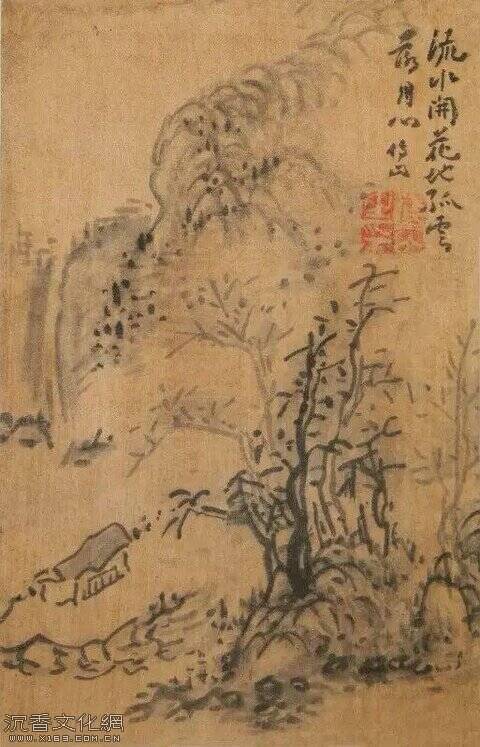 流水開花地孤雲
落月心傅山
沉香文化網
WWW.X163.COM.CN